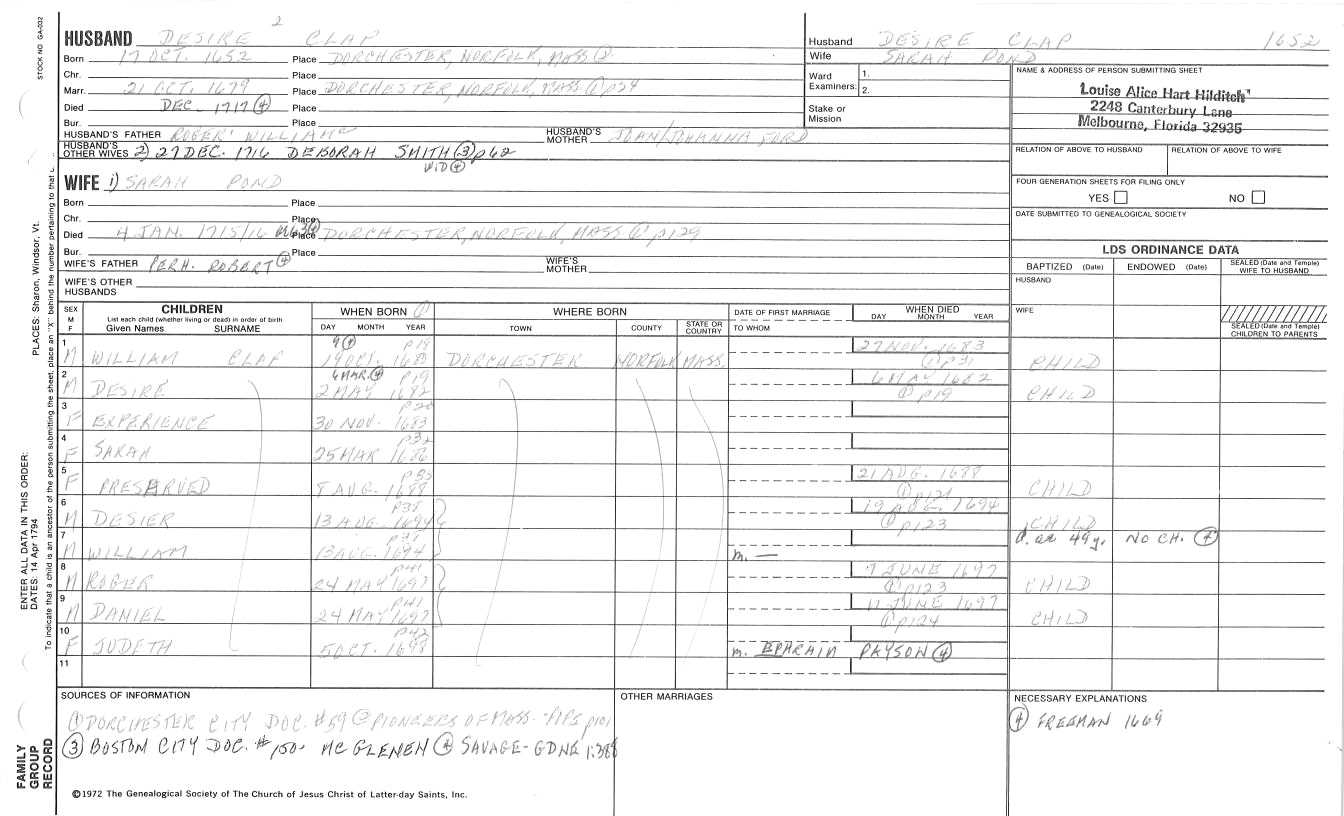 2
HUSBAND DESIRE CLAP
Born 17 OCT. 1652 Place DORCHESTER, NORFOLK, MASS ①
Chr. Place
Marr. 21 OCT. 1679 Place DORCHESTER, NORFOLK, MASS ① p24
Died DEC. 1717 ④ Place
Bur. Place
HUSBAND'S FATHER ROGER WILLIAM HUSBAND'S MOTHER JOAN/JOHANNA FORD
HUSBAND'S OTHER WIVES 2) 27 DEC. 1716 DEBORAH SMITH ③ p62
WID ④
WIFE 1) SARAH POND
Born Place
Chr. Place
Died 4 JAN. 1715/16 Place DORCHESTER, NORFOLK, MASS ① p129
Bur. Place
WIFE'S FATHER PERH. ROBERT ④ WIFE'S MOTHER
WIFE'S OTHER HUSBANDS
Husband DESIRE CLAP 1652
Wife SARAH POND
Ward Examiners: 1.
2.
Stake or Mission
NAME & ADDRESS OF PERSON SUBMITTING SHEET
Louise Alice Hart Hilditch
2248 Canterbury Lane
Melbourne, Florida 32935
RELATION OF ABOVE TO HUSBAND RELATION OF ABOVE TO WIFE
FOUR GENERATION SHEETS FOR FILING ONLY
YES NO
DATE SUBMITTED TO GENEALOGICAL SOCIETY
LDS ORDINANCE DATA
BAPTIZED (Date) ENDOWED (Date) SEALED (Date and Temple) WIFE TO HUSBAND
HUSBAND
WIFE
SEALED (Date and Temple) CHILDREN TO PARENTS
SEX M F CHILDREN WHEN BORN ① WHERE BORN DATE OF FIRST MARRIAGE WHEN DIED
List each child (whether living or dead) in order of birth
Given Names SURNAME DAY MONTH YEAR TOWN COUNTY STATE OR COUNTRY TO WHOM DAY MONTH YEAR
9 ④ p19 27 NOV. 1683
1 M WILLIAM CLAP 19 OCT. 1680 DORCHESTER NORFOLK MASS. ① p31 CHILD
6 MAR. ④ p19 6 MAY 1682
2 M DESIRE 2 MAY 1682 ① p19 CHILD
p20
3 F EXPERIENCE 30 NOV. 1683
p32
4 F SARAH 25 MAR 1686
21 AUG. 1688
5 F PRESERVED 8 AUG. 1688 ① p121 CHILD
p38 19 AUG. 1694
6 M DESIER 13 AUG. 1694 ① p123 CHILD
7 M WILLIAM 13 AUG. 1694 m. — d. ae 49 y. NO CH. ④
p41 7 JUNE 1697
8 M ROGER 24 MAY 1697 ① p123 CHILD
p41 11 JUNE 1697
9 M DANIEL 24 MAY 1697 ① p124 CHILD
p42
10 F JUDETH 5 OCT. 1698 m. EPHRAIM PAYSON ④
11
SOURCES OF INFORMATION
① DORCHESTER CITY DOC. #59 ② PIONEERS OF MASS. - POPE p101
③ BOSTON CITY DOC. # 150- MC GLENEN ④ SAVAGE - GDNE 1:388
OTHER MARRIAGES
NECESSARY EXPLANATIONS
④ FREEMAN 1669
©1972 The Genealogical Society of The Church of Jesus Christ of Latter-day Saints, Inc.
STOCK NO. GA-032
PLACES: Sharon, Windsor, Vt.
ENTER ALL DATA IN THIS ORDER:
DATES: 14 Apr 1794
To indicate that a child is an ancestor of the person submitting the sheet, place an "X" behind the number pertaining to that
FAMILY GROUP RECORD